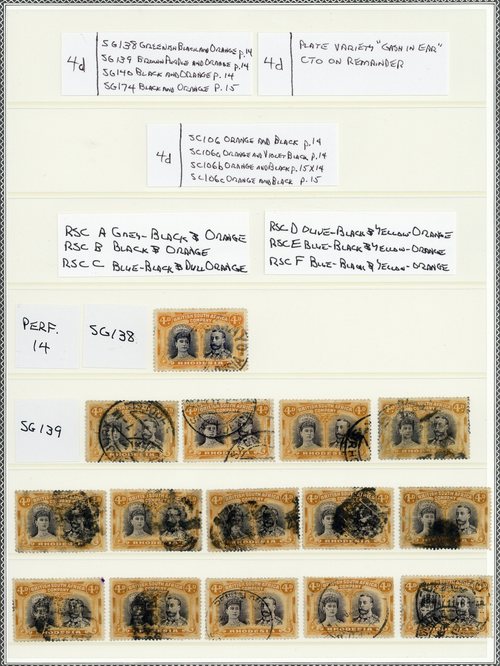 4d
SG138 GREENISH BLACK AND ORANGE p.14
SG139 BROWN PURPLE AND ORANGE p.14
SG140 BLACK AND ORANGE p.14
SG174 BLACK AND ORANGE p.15
4d
PLATE VARIETY "GASH IN EAR"
CTO ON REMAINDER
4d
SC106 ORANGE AND BLACK p.14
SC106a ORANGE AND VIOLET BLACK p.14
SC106b ORANGE AND BLACK p.15X14
SC106c ORANGE AND BLACK p.15
RSC A GREY-BLACK & ORANGE
RSC B BLACK & ORANGE
RSC C BLUE-BLACK & DULL ORANGE
RSC D OLIVE-BLACK & YELLOW ORANGE
RSC E BLUE-BLACK & YELLOW-ORANGE
RSC F BLUE-BLACK & YELLOW-ORANGE
PERF.
14
SG138
BRITISH SOUTH AFRICA
COMPANY
RHODESIA
SG139
4d
RHODESIA
4d
RHODESIA
4d
RHODESIA
4d
RHODESIA